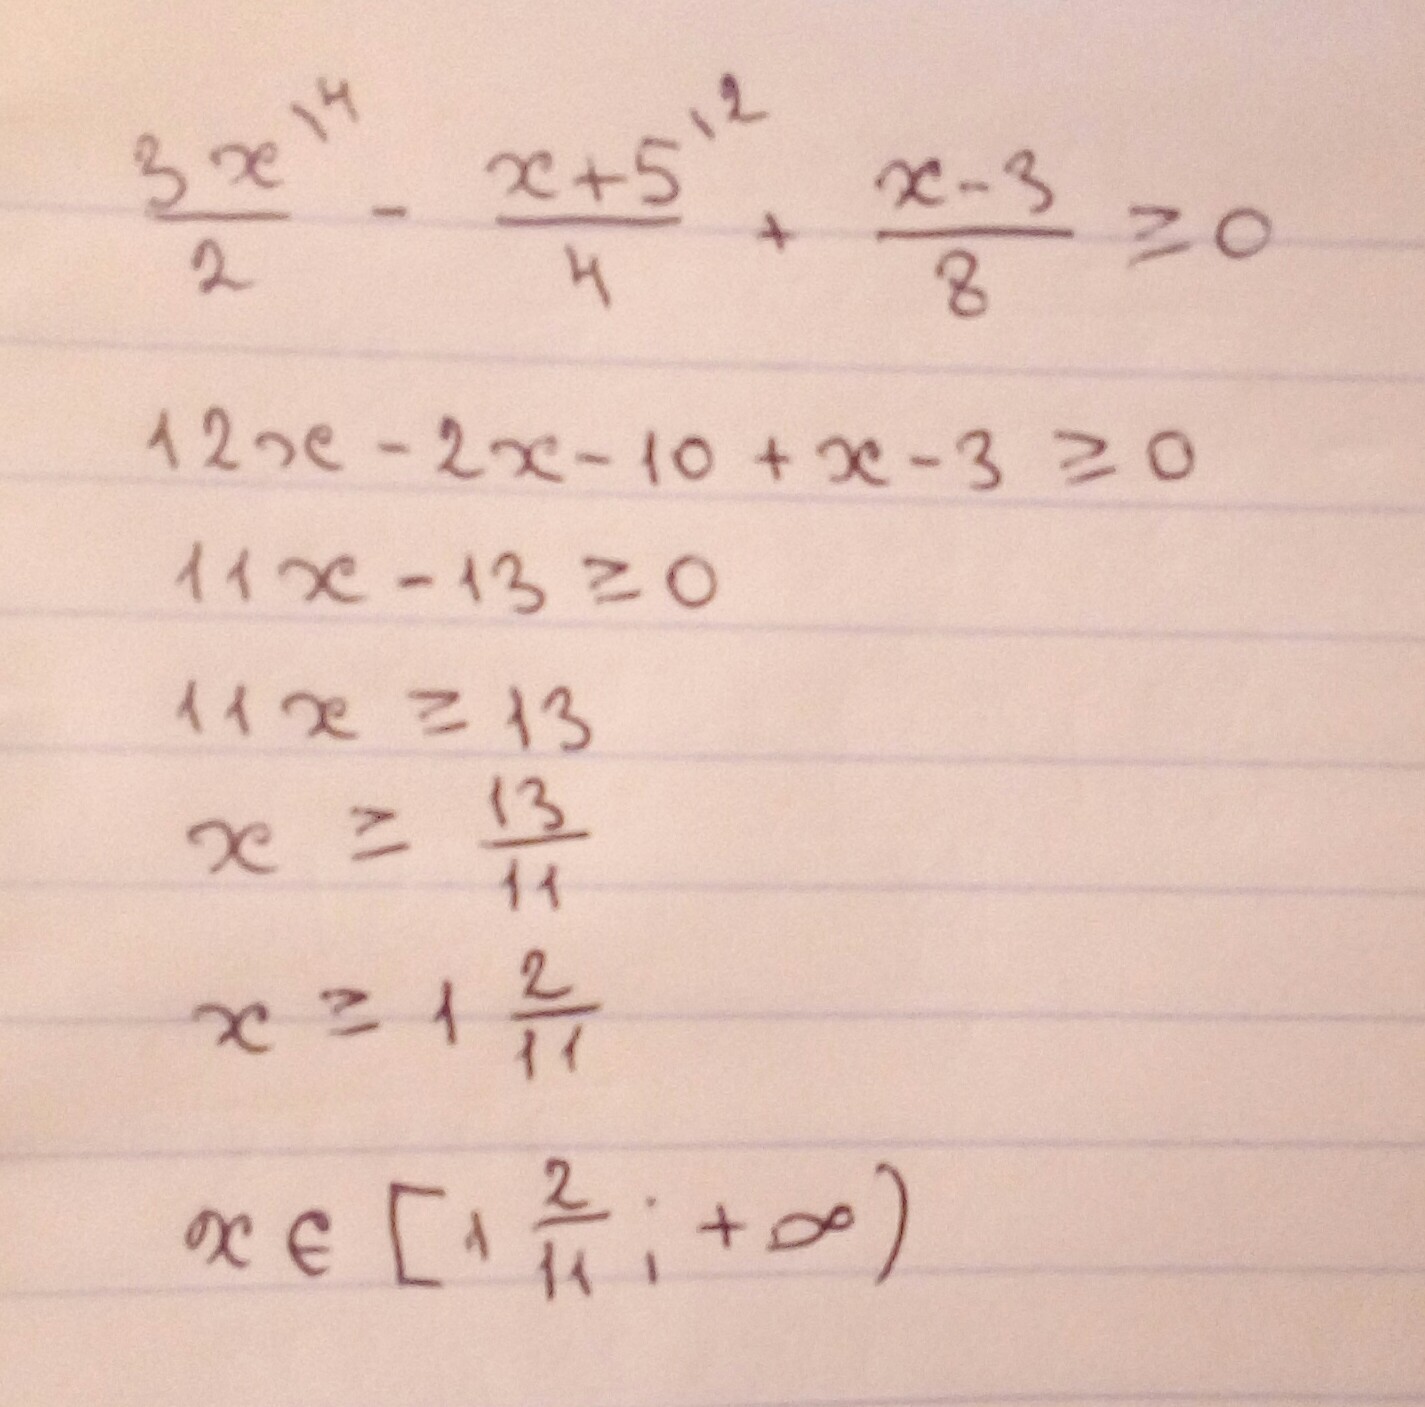 3x\4/2 - x+5\2/4 + x-3/8 ≥ 0
12x - 2x - 10 + x - 3 ≥ 0
11x - 13 ≥ 0
11x ≥ 13
x ≥ 13/11
x ≥ 1 2/11
x ∈ [1 2/11 ; +∞)